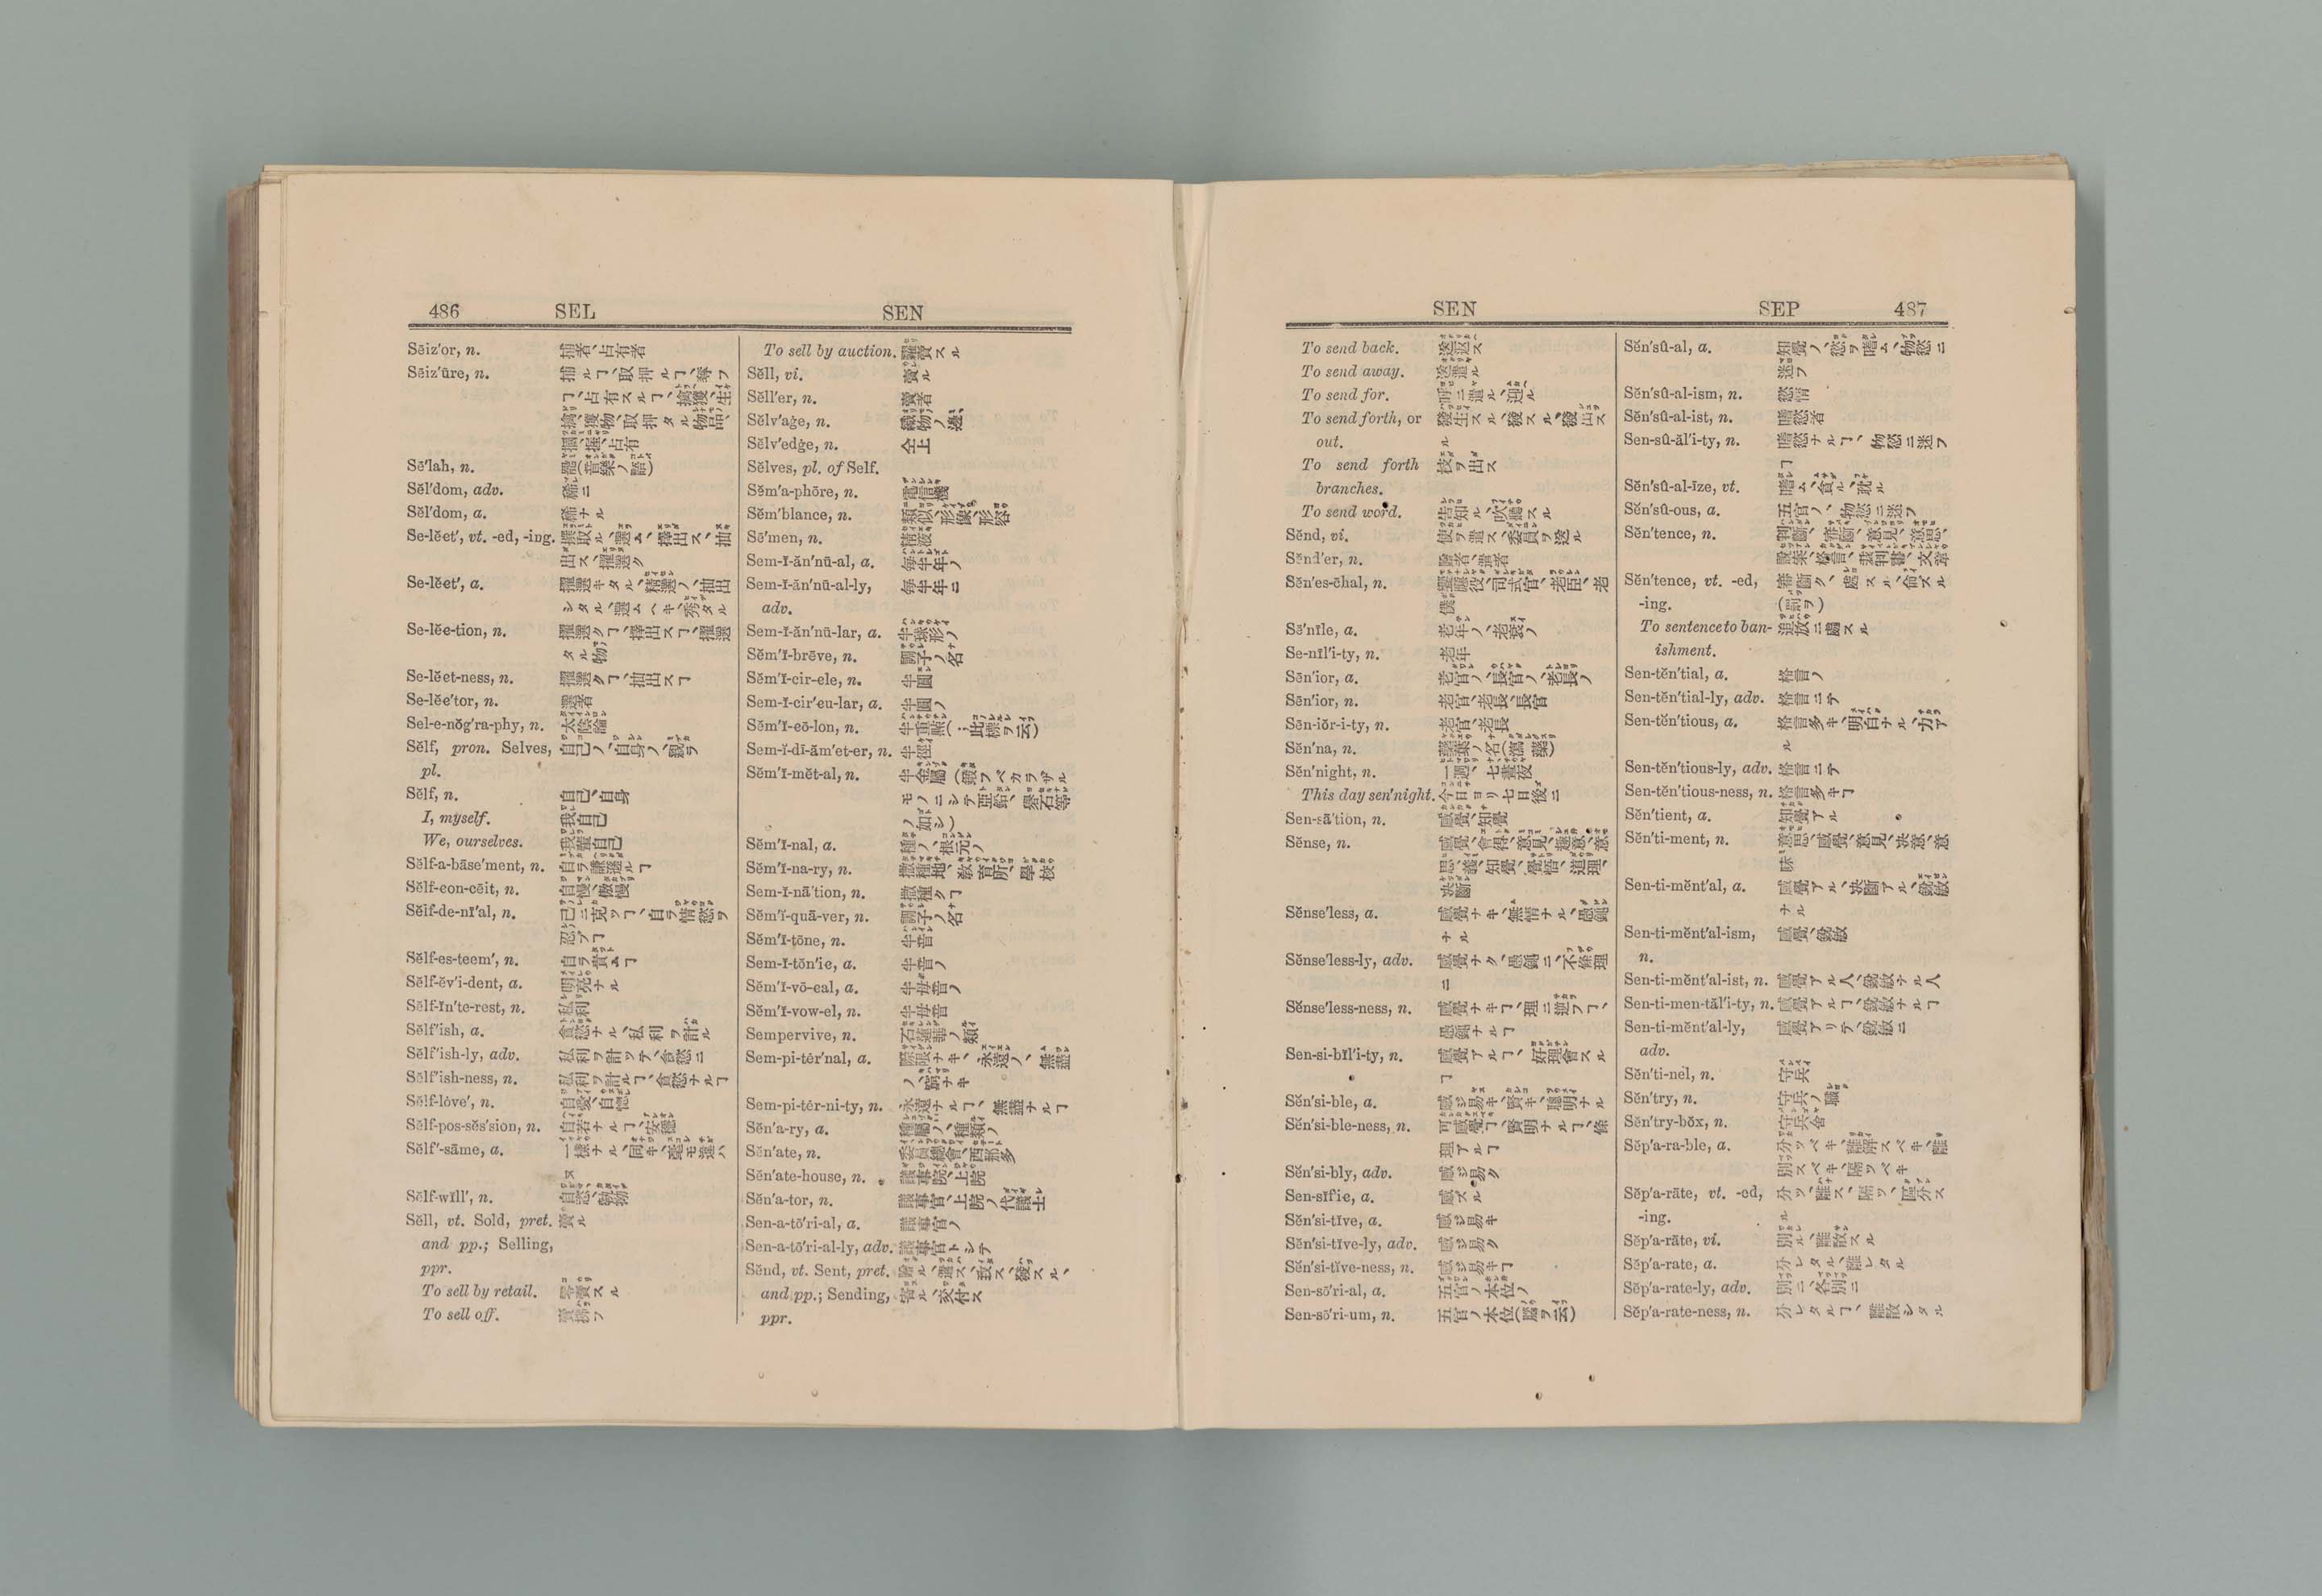 486 SEL SEN
Sēiz′or, n. 捕者、占有者
Sēiz′ūre, n. 捕ルヿ、取押ルヿ、奪フ
ヿ、占有スルヿ、擒獲、生
擒、獲物、取押タル物品、
掴、握、占有
Sē′lah, n. 罷(音樂ノ語)
Sĕl′dom, adv. 稀ニ
Sĕl′dom, a. 稀ナル
Se-lĕet′, vt. -ed, -ing. 撰取ル、選ム、擇出ス、抽
出ス、擢選ク
Se-lĕet′, a. 擢選キタル、精選ノ、抽出
シタル、選ムヘキ、秀タル
Se-lĕe-tion, n. 擢選クヿ、擇出スヿ、擢選
タル物
Se-lĕet-ness, n. 擢選クヿ、抽出スヿ
Se-lĕe′tor, n. 選者
Sel-e-nŏg′ra-phy, n. 太陰論
Sĕlf, pron. Selves, 自己ノ、自身ノ、親ラ
pl.
Sĕlf, n. 自己、自身
I, mȳself. 我自己
We, ourselves. 我輩自己
Sĕlf-a-bāse′ment, n. 自ラ謙遜ルヿ
Sĕlf-eon-cēit, n. 自慢、傲慢
Sĕlf-de-nī′al, n. 己ニ克ツヿ、自ラ情慾ヲ
忍ブヿ
Sĕlf-es-teem′, n. 自ラ貴ムヿ
Sĕlf-ĕv′i-dent, a. 明亮ナル
Sĕlf-ĭn′te-rest, n. 私利
Sĕlf′ish, a. 貪慾ナル、私利ヲ計ル
Sĕlf′ish-ly, adv. 私利ヲ計ツテ、貪慾ニ
Sĕlf′ish-ness, n. 私利ヲ計ルヿ、貪慾ナルヿ
Sĕlf-lóve′, n. 自愛、自惚
Sĕlf-pos-sĕs′sion, n. 自若ナルヿ、安穩
Sĕlf′-sāme, a. 一樣ナル、同キ、毫モ違ハ
ス
Sĕlf-wĭll′, n. 自恣、執拗
Sĕll, vt. Sold, pret. 賣ル
and pp.; Selling,
ppr.
To sell by retail. 零賣スル
To sell off. 賣拂フ
To sell by auction. 糶賣スル
Sĕll, vi. 賣ル
Sĕll′er, n. 賣者
Sĕlv′aġe, n. 織物ノ邊
Sĕlv′edġe, n. 仝上
Sĕlves, pl. of Self.
Sĕm′a-phōre, n. 電信機
Sĕm′blance, n. 類似、形像、形容
Sē′men, n. 精液
Sem-ĭ-ăn′nū-al, a. 每半年ノ
Sem-ĭ-ăn′nū-al-ly, 每半年ニ
adv.
Sem-ĭ-ăn′nū-lar, a. 半珠形ノ
Sĕm′ĭ-brēve, n. 調子ノ名
Sĕm′ĭ-cir-ele, n. 半圓
Sem-ĭ-cir′eu-lar, a. 半圓ノ
Sĕm′ĭ-eō-lon, n. 半頂點(;此標ヲ云)
Sem-ĭ-dī-ăm′et-er, n. 半徑
Sĕm′ĭ-mĕt-al, n. 半金屬(鍛フベカラザル
モノニシテ亞鉛、礜石等
ノ如シ)
Sĕm′ĭ-nal, a. 種ノ、根元ノ
Sĕm′ĭ-na-ry, n. 撒種地、敎育所、學校
Sem-ĭ-nā′tion, n. 撒種クヿ
Sĕm′ĭ-quā-ver, n. 調子ノ名
Sĕm′ĭ-tōne, n. 半音
Sem-ĭ-tŏn′ie, a. 半音ノ
Sĕm′ĭ-vō-eal, a. 半母音ノ
Sĕm′ĭ-vow-el, n. 半母音
Sempervive, n. 石蓮華ノ類
Sem-pi-tẽr′nal, a. 際限ナキ、永遠ノ、無盡
ノ、窮ナキ
Sem-pi-tẽr-ni-ty, n. 永遠ナルヿ、無盡ナルヿ
Sĕn′a-ry, a. 種屬ノ、種類ノ
Sĕn′ate, n. 委員總會、西那多
Sĕn′ate-house, n. 議事院、上院
Sĕn′a-tor, n. 議事官、上院ノ代議士
Sen-a-tō′ri-al, a. 議事官ノ
Sen-a-tō′ri-al-ly, adv. 議事官トシテ
Sĕnd, vt. Sent, pret. 贈ル、遣ス、致ス、發スル、
and pp.; Sending, 寄ル、交付ス
ppr.
SEN SEP 487
To send back. 送返ス
To send away. 送遣ル
To send for. 呼ニ遣ル、迎ル
To send forth, or 發生スル、發スル、發出ス
out. ル
To send forth 枝ヲ出ス
branches.
To send word. 告知ル、吹聽スル
Sĕnd, vi. 使ヲ遣ス、委員ヲ送ル
Sĕnd′er, n. 贈者、遣者
Sĕn′es-çhal, n. 饗應役、司式官、老臣、老
僕
Sē′nīle, a. 老年ノ、老衰ノ
Se-nĭl′i-ty, n. 老年
Sēn′ior, a. 老官ノ、長官ノ、老長ノ
Sēn′ior, n. 老官、老長、長官
Sēn-iŏr-i-ty, n. 老官、老長
Sĕn′na, n. 藥葉ノ名(瀉藥)
Sĕn′night, n. 一週、七晝夜
This day sen′night. 今日ヨリ七日後ニ
Sen-sā′tion, n. 感覺、知覺
Sĕnse, n. 感覺、會得、意見、趣意、意
思、義、知覺、覺悟、道理、
決斷
Sĕnse′less, a. 感覺ナキ、無情ナル、愚鈍
ナル
Sĕnse′less-ly, adv. 感覺ナク、愚鈍ニ、不條理
ニ
Sĕnse′less-ness, n. 感覺ナキヿ、理ニ逆フヿ、
愚鈍ナルヿ
Sen-si-bĭl′i-ty, n. 感覺アルヿ、好理會スル
ヿ
Sĕn′si-ble, a. 感ジ易キ、賢キ、聰明ナル
Sĕn′si-ble-ness, n. 可感覺ヿ、賢明ナルヿ、條
理アルヿ
Sĕn′si-bly, adv. 感ジ易ク
Sen-sĭfie, a. 感ズル
Sĕn′si-tĭve, a. 感ジ易キ
Sĕn′si-tĭve-ly, adv. 感ジ易ク
Sĕn′si-tĭve-ness, n. 感ジ易キヿ
Sen-sō′ri-al, a. 五官ノ本位ノ
Sen-sō′ri-um, n. 五官ノ本位(腦ヲ云)
Sĕn′sû-al, a. 知覺ノ、慾ヲ嗜ム、物慾ニ
迷フ
Sĕn′sû-al-ism, n. 慾情
Sĕn′sû-al-ist, n. 嗜慾者
Sen-sû-ăl′i-ty, n. 嗜慾ナルヿ、物慾ニ迷フ
ヿ
Sĕn′sû-al-īze, vt. 嗜ム、貪ル、耽ル
Sĕn′sû-ous, a. 五官ノ、物慾ニ迷フ
Sĕn′tence, n. 判斷、審斷、意見、意思、
設案、格言、裁判書、文章
Sĕn′tence, vt. -ed, 審斷ク、處スル、命ズル
-ing. (罰ヲ)
To sentence to ban- 追放ニ處スル
ishment.
Sen-tĕn′tial, a. 格言ノ
Sen-tĕn′tial-ly, adv. 格言ニテ
Sen-tĕn′tious, a. 格言多キ、明白ナル、力ア
ル
Sen-tĕn′tious-ly, adv. 格言ニテ
Sen-tĕn′tious-ness, n. 格言多キヿ
Sĕn′tient, a. 知覺アル
Sĕn′ti-ment, n. 意思、感覺、意見、決意、意
味
Sen-ti-mĕnt′al, a. 感覺アル、決斷アル、銳敏
ナル
Sen-ti-mĕnt′al-ism, 感覺、銳敏
n.
Sen-ti-mĕnt′al-ist, n. 感覺アル人、銳敏ナル人
Sen-ti-men-tăl′i-ty, n. 感覺アルヿ、銳敏ナルヿ
Sen-ti-mĕnt′al-ly, 感覺アリテ、銳敏ニ
adv.
Sĕn′ti-nel, n. 守兵
Sĕn′try, n. 守兵ノ職
Sĕn′try-bŏx, n. 守兵舍
Sĕp′a-ra-ble, a. 分ツベキ、離解スベキ、離
別スベキ、隔ツベキ
Sĕp′a-rāte, vt. -ed, 分ツ、離ス、隔ツ、區分ス
-ing. ル
Sĕp′a-rāte, vi. 別ル、離散スル
Sĕp′a-rate, a. 分レタル、離レタル
Sĕp′a-rate-ly, adv. 別ニ、各別ニ
Sĕp′a-rate-ness, n. 分レタルヿ、離散シタル